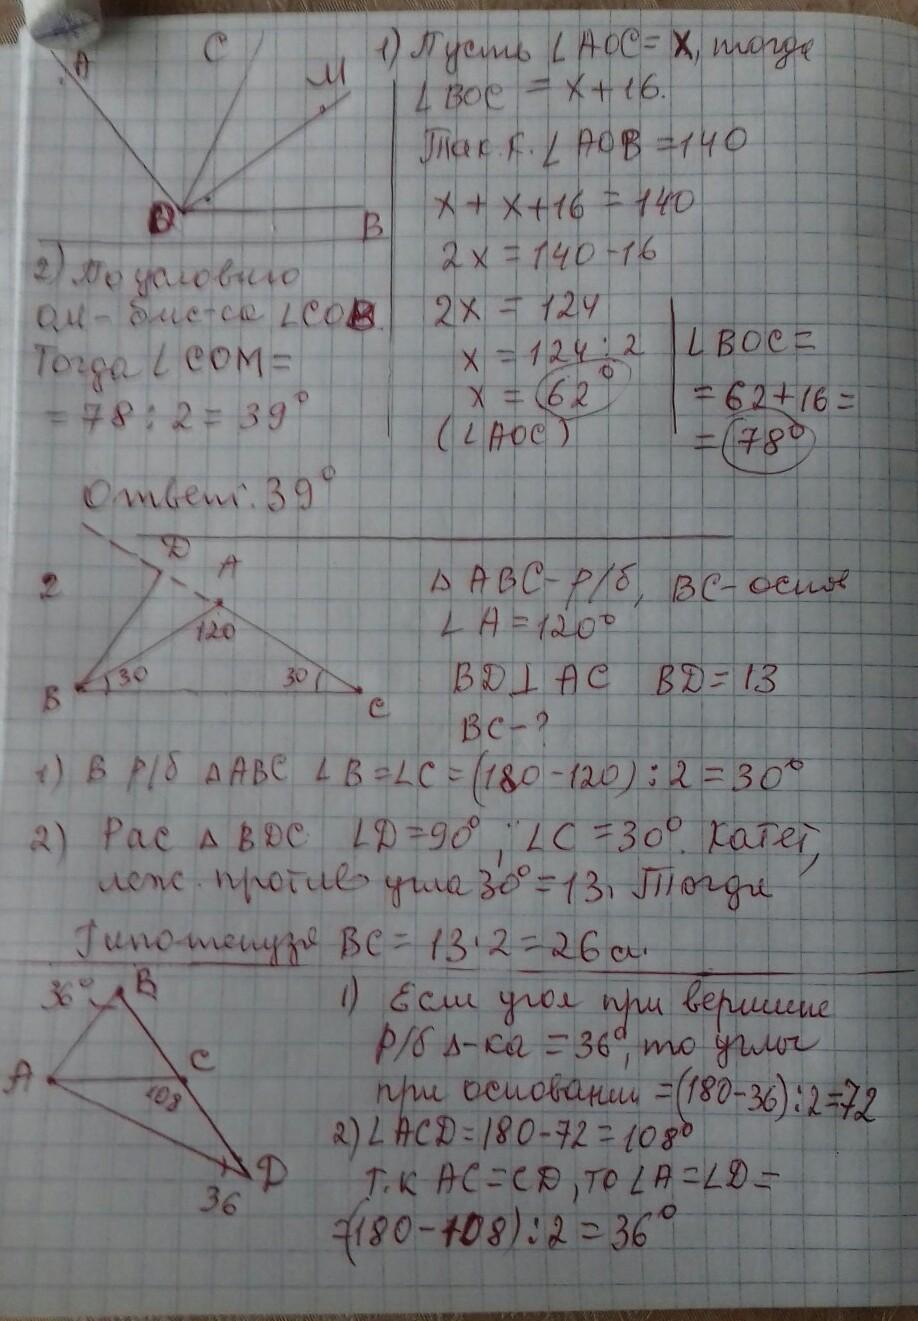 A C M O B
1) Пусть ∠AOC = x, тогда
∠BOC = x + 16.
Так. к. ∠AOB = 140
x + x + 16 = 140
2x = 140 - 16
2x = 124
x = 124 : 2
x = 62°
(∠AOC)
∠BOC =
= 62 + 16 =
= 78°
2) По условию
OM - бис-са ∠COB
Тогда ∠COM =
= 78 : 2 = 39°
Ответ: 39°
2
D A
120
B 30 30 C
Δ ABC - р/б, BC - основ
∠A = 120°
BD ⊥ AC BD = 13
BC - ?
1) В р/б ΔABC ∠B = ∠C = (180 - 120) : 2 = 30°
2) Рас Δ BDC ∠D = 90°, ∠C = 30°. Катет,
леж. против угла 30° = 13. Тогда
Гипотенуза BC = 13 · 2 = 26 см.
36° B
A C
108
D
36
1) Если угол при вершине
р/б Δ-ка = 36°, то углы
при основании = (180 - 36) : 2 = 72
2) ∠ACD = 180 - 72 = 108°
Т.к AC = CD, то ∠A = ∠D =
= (180 - 108) : 2 = 36°